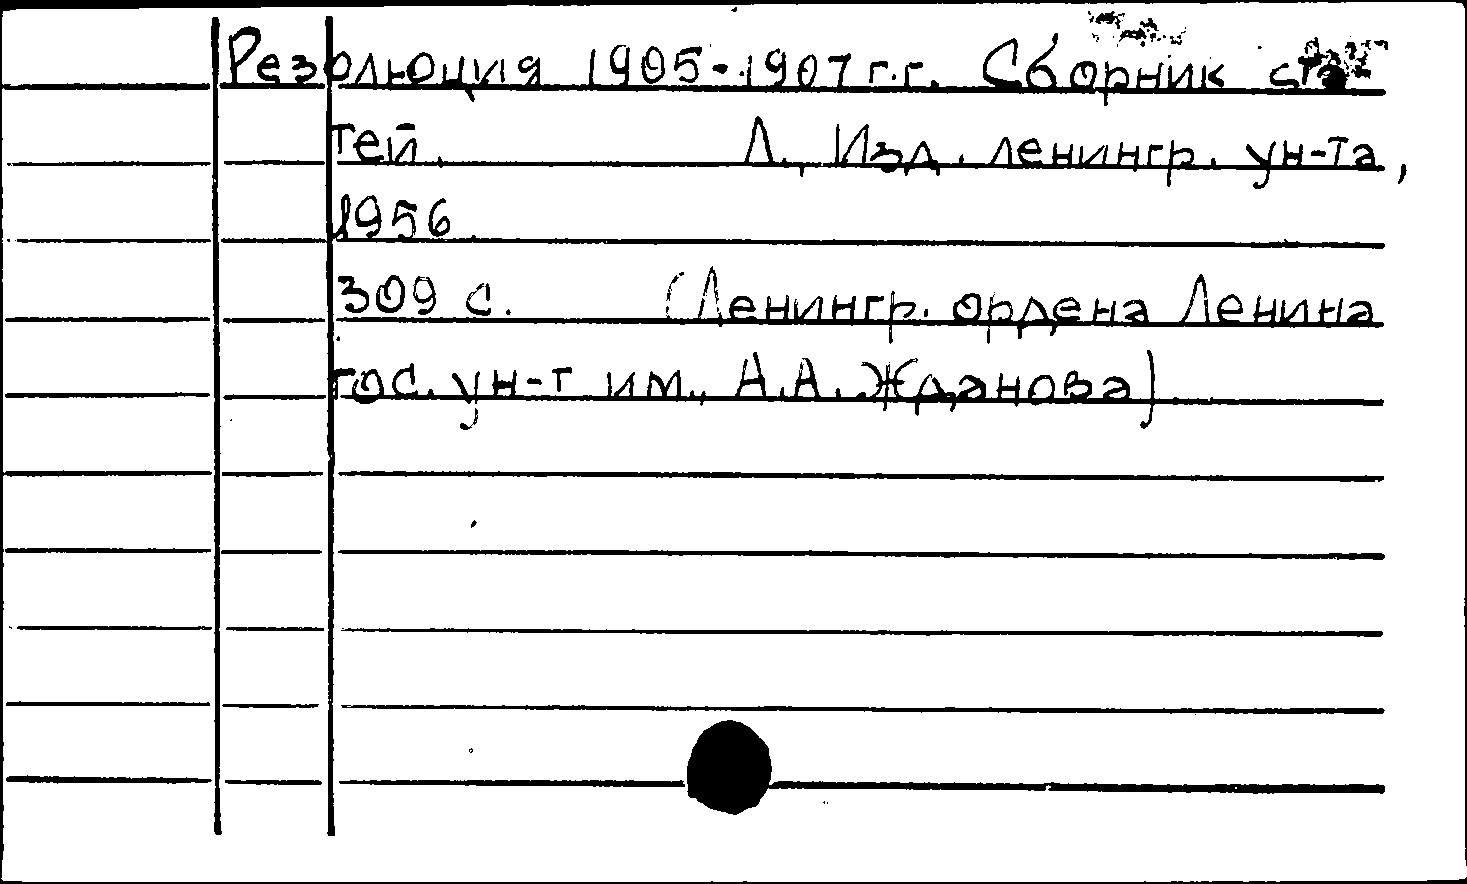 Резолюция 1905-1907 г.г. Сборник ста-
тей. Л., Изд. ленингр. ун-та,
1956.
309 с. (Ленингр. ордена Ленина
гос. ун-т им., А.А. Жданова).